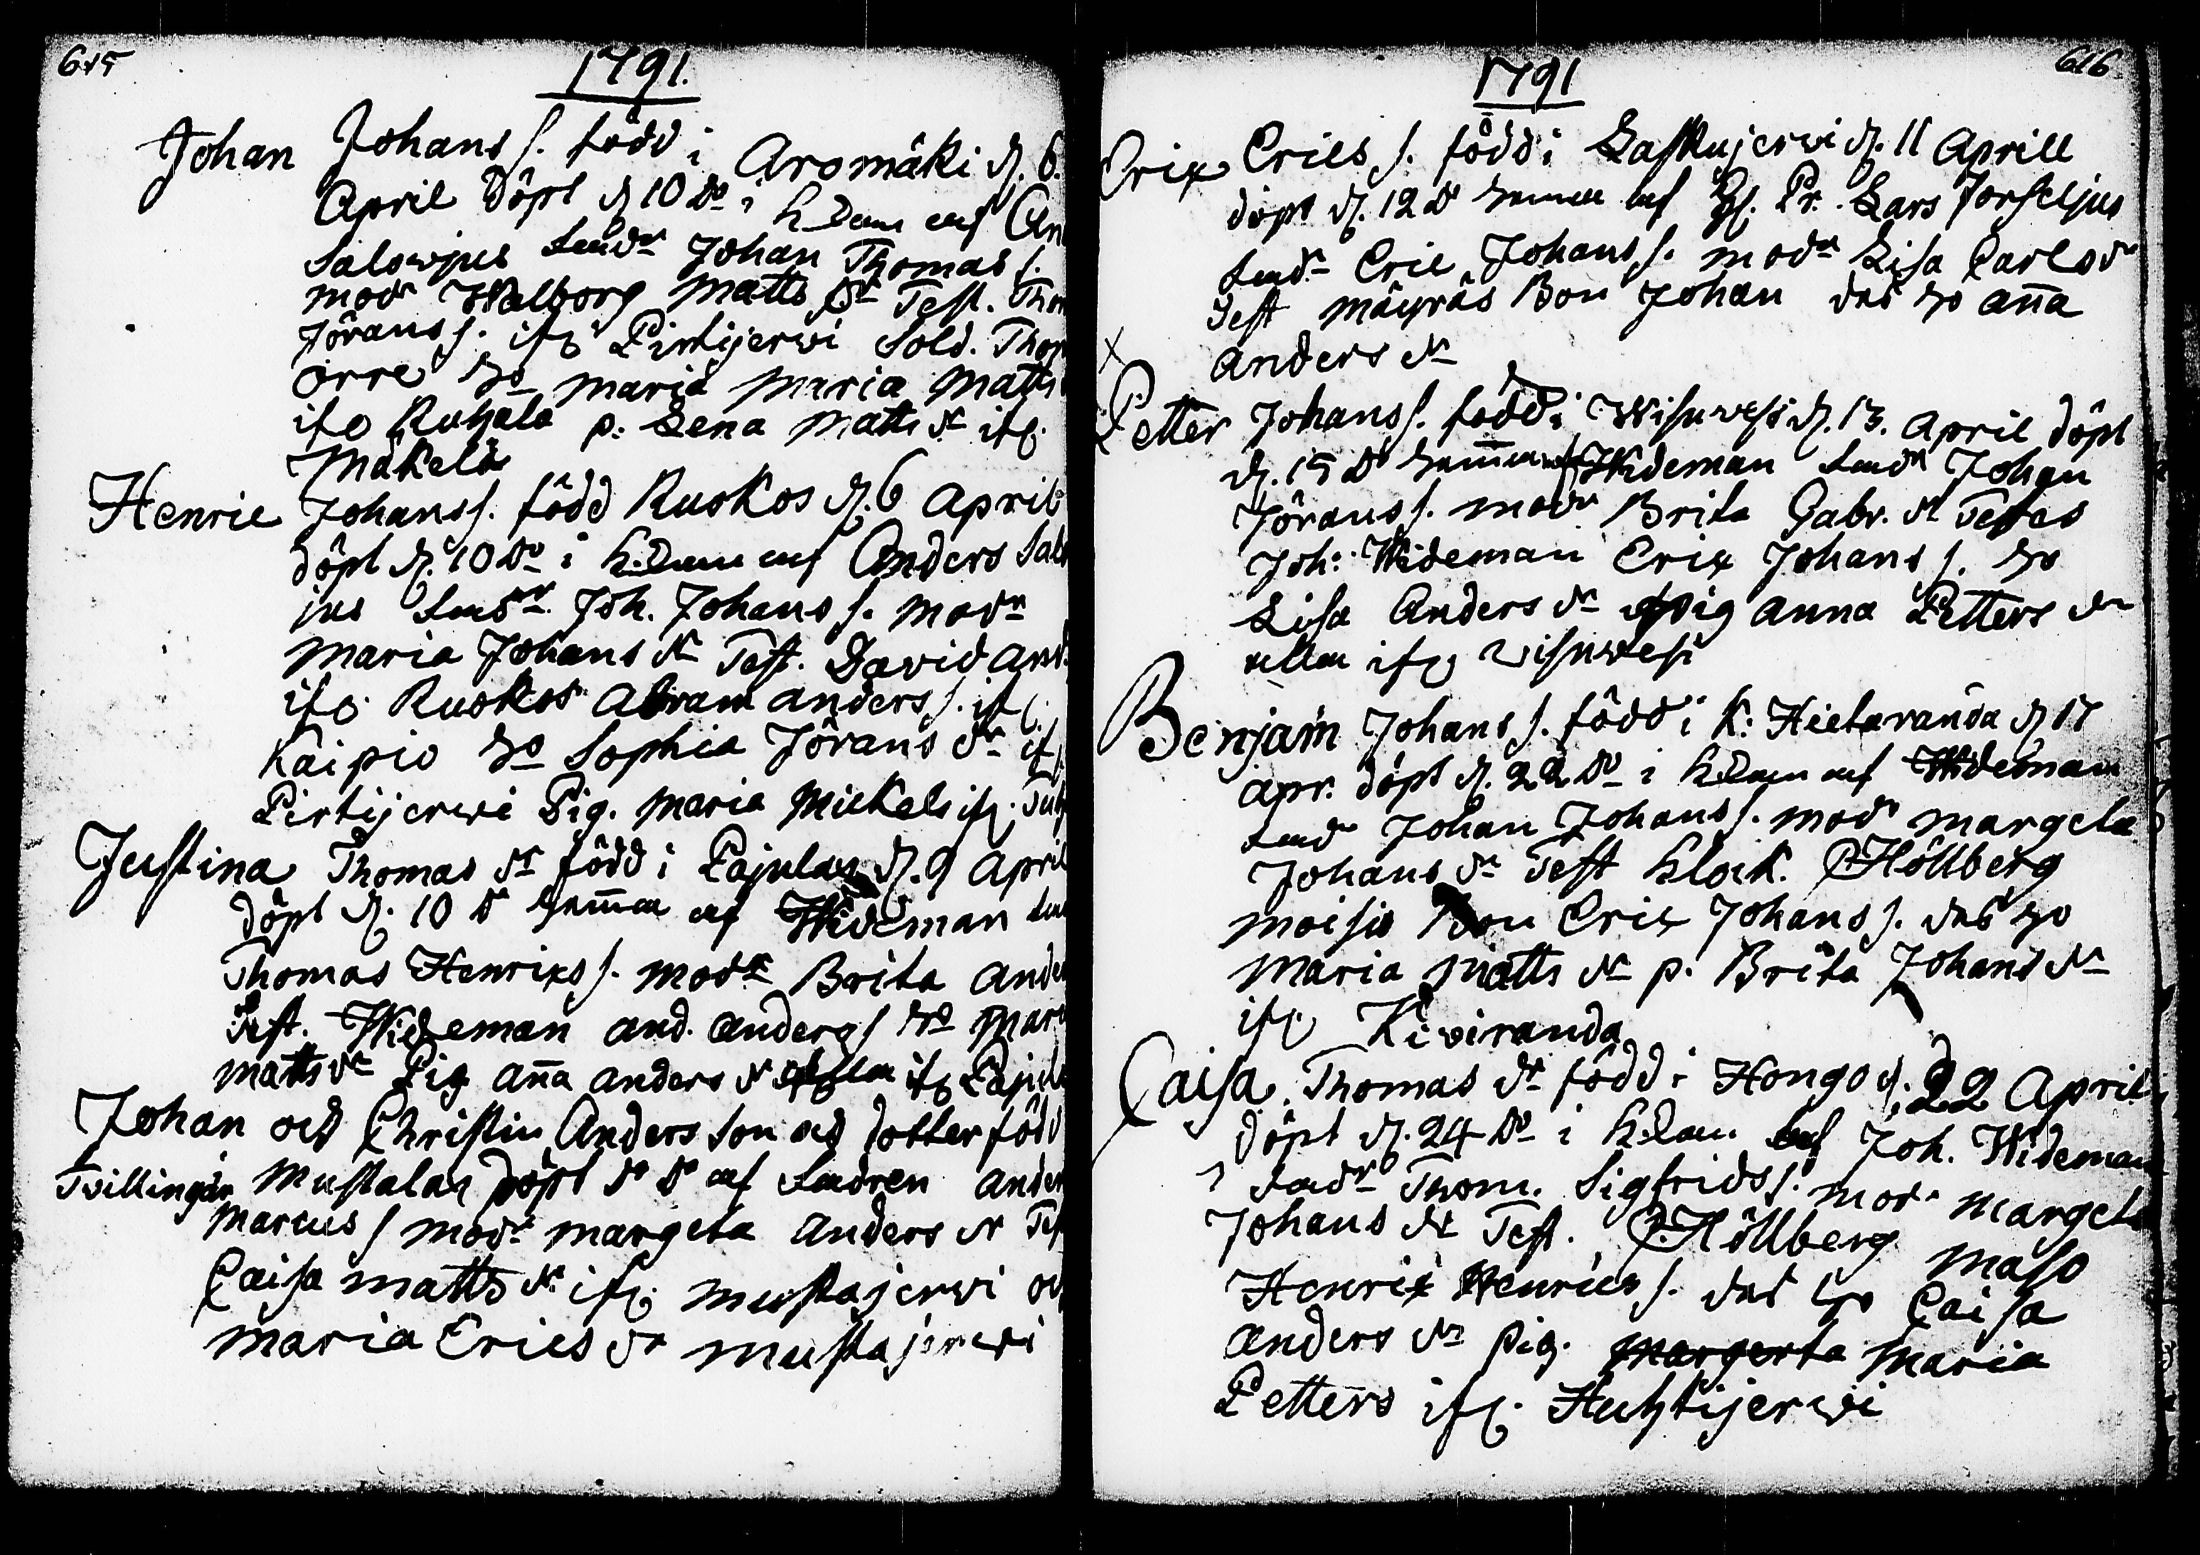 615
1791.
Johan Johans s. född i Aromäki d. 6.
April döpt d 10 do i h. Dom af An
Salowjus fadr Johan Thomas s.
modr Walborg Matts dr Test. Thom
Jörans s. ifr Pirtijerwi Sold. Thom
Orre ho Maria Maria Matts
ifr Ruhala p. Lena Matts dr ifr
Mäkelä
Henric Johans s. född Ruokos d. 6 April
döpt d. 10 do i h. Dom af Anders Salo
jus fadr. Joh. Johans s. modr
Maria Johans dr Test. David And.
ifr. Ruokos Abram Anders s. ifr.
Kaipio ho Sophia Jörans dr ifr
Pirtijerwi Pig. Maria Mickels ifr.
Justina Thomas dr född i Pajulas d. 9 April
döpt d. 10 d hemma af Wideman fad
Thomas Henrixs s. modr Brita Ande
Test. Wideman And. Anders s ho Mar
Matts dr Pig Aña Anders dr alla ifr Pajul
Johan och Christin Anders Son och dotter föd
Tvillingar Mustalax döpt do do af fadren Ander
Marcus s modr Margeta Anders dr Test
Caisa Matts dr ifr. Mustajerwi och
Maria Erics dr Mustajerwi
616
1791
Erix Erics s. född i Laskujerwi d. 11 Aprill
döpt d. 12 do hemma af Pr. Lars Forseljus
fadr Eric Johans s. modr Lisa Carls dr
Test Mäyräs Bon Johan das ho Aña
Anders dr
Petter Johans s. född i Wisuwesi d. 13. April döpt
d. 15 do hemma af Wideman fadr Johan
Jörans s. modr Brita Gabr. dr Testes
Joh: Wideman Erix Johans s. ho
Lisa Anders dr Pig Anna Petters dr
alla ifr Wisuwesi
Benjamin Johans s. född i K: Hietaranda d 17
Apr. döpt d. 22 do i h. Dom af Wideman
fadr Johan Johans s. modr Margeta
Johans dr Test Klock. P. Höllberg
Moisio Bon Eric Johans s. das ho
Maria Matts dr p. Brita Johans dr
ifr Kiviranda
Caisa Thomas dr född i Hongo d. 22 April
döpt d. 24 do i h. Dom af Joh. Wideman
fadr Thom. Sigfrids s. modr Margeta
Johans dr Test. P. Höllberg Maso
Henrix Henrics s. das ho Caisa
Anders dr Pig. Margerta Maria
Petters ifr. Huhtijerwi